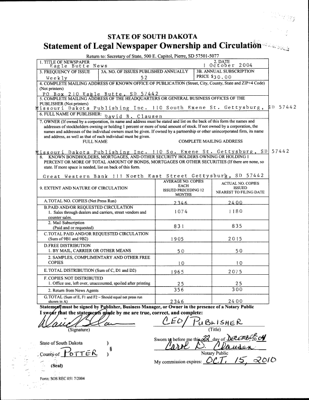 STATE OF SOUTH DAKOTA
Statement of Legal Newspaper Ownership and Circulation
Return to: Secretary of State, 500 E. Capitol, Pierre, SD 57501-5077
1. TITLE OF NEWSPAPER
Eagle Butte News
2. DATE
1 October 2004
3. FREQUENCY OF ISSUE
Weekly
3A. NO. OF ISSUES PUBLISHED ANNUALLY
52
3B. ANNUAL SUBSCRIPTION
PRICE $30.00
4. COMPLETE MAILING ADDRESS OF KNOWN OFFICE OF PUBLICATION (Street, City, County, State and ZIP+4 Code)
(Not printers)
PO Box 210 Eagle Butte, SD 57442
5. COMPLETE MAILING ADDRESS OF THE HEADQUARTERS OR GENERAL BUSINESS OFFICES OF THE
PUBLISHER (Not printers)
Missouri Dakota Publishing Inc. 110 South Exene St. Gettysburg, SD 57442
6. FULL NAME OF PUBLISHER:
David B. Clausen
7. OWNER (If owned by a corporation, its name and address must be stated and
FULL NAME
COMPLETE MAILING ADDRESS
Missouri Dakota Publishing Inc. 110 So. Exene St. Gettysburg, SD 57442
8. KNOWN BONDHOLDERS, MORTGAGEES, AND OTHER SECURITY HOLDERS OWNING OR HOLDING 1
PERCENT OR MORE OF TOTAL AMOUNT OF BONDS, MORTGAGES OR OTHER SECURITIES (If there are none, so
state. If more space is needed, list on back of this form.
Great Western Bank 111 North East Street Gettysburg, SD 57442
9. EXTENT AND NATURE OF CIRCULATION
AVERAGE NO. COPIES
EACH
ISSUED PRECEDING 12
MONTHS
ACTUAL NO. COPIES
ISSUED
NEAREST TO FILING DATE
A. TOTAL NO. COPIES (Net Press Run)
2346
2400
B. PAID AND/OR REQUESTED CIRCULATION
1. Sales through dealers and carriers, street vendors and
counter sales.
1074
1180
2. Mail Subscription
(Paid and or requested)
831
835
C. TOTAL PAID AND/OR REQUESTED CIRCULATION
(Sum of 9B1 and 9B2)
1905
2015
D. FREE DISTRIBUTION
1. BY MAIL, CARRIER OR OTHER MEANS
50
50
2. SAMPLES, COMPLIMENTARY AND OTHER FREE
COPIES
10
10
E. TOTAL DISTRIBUTION (Sum of C, D1 and D2)
1965
2075
F. COPIES NOT DISTRIBUTED
1. Office use, left over, unaccounted, spoiled after printing
25
25
2. Return from News Agents
356
300
G. TOTAL (Sum of E, F1 and F2 – Should equal net press run
shown in A)
2346
2400
Statement must be signed by Publisher, Business Manager, or Owner in the presence of a Notary Public
I swear that the statements made by me are true, correct, and complete:
CEO/PUBLISHER
(Signature)
(Title)
State of South Dakota )
County of POTTER )
(Seal)
Carol D. Clausen
Notary Public
My commission expires: OCT. 15, 2010
Form: SOS REC 051 7/2004